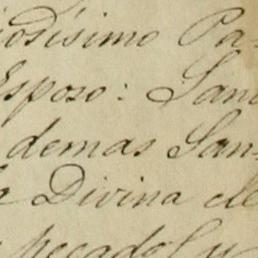 iosísimo Pa-
Esposo: San
demas San-
a Divina cle
pecado, y